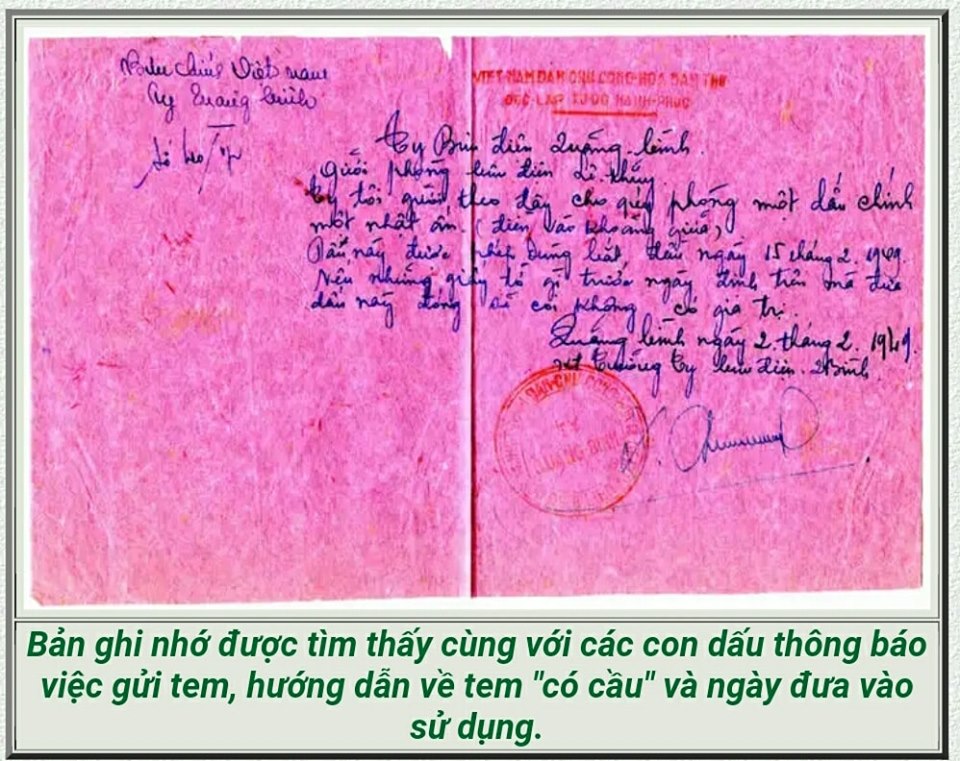 Bưu chính Việt nam
Ty Quảng bình
Số
VIỆT-NAM DÂN CHỦ CỘNG-HÒA NĂM THỨ
ĐỘC-LẬP TỰ-DO HẠNH-PHÚC
Ty Bưu điện Quảng-bình
Gửi phòng bưu điện
Ty tôi gửi theo đây cho quý phòng một dấu chính
một nhật ấn. (điền vào khoảng giữa)
Dấu này được phép dùng bắt đầu ngày 15 tháng 2. 1949.
Nếu những giấy tờ gì trước ngày định trên mà đưa
dấu này đóng sẽ coi không có giá trị.
Quảng bình ngày 2. tháng 2. 1949.
Trưởng Ty bưu điện. QBình
DÂN-CHỦ CỘNG
TY
QUẢNG BÌNH
Bản ghi nhớ được tìm thấy cùng với các con dấu thông báo
việc gửi tem, hướng dẫn về tem "có cầu" và ngày đưa vào
sử dụng.